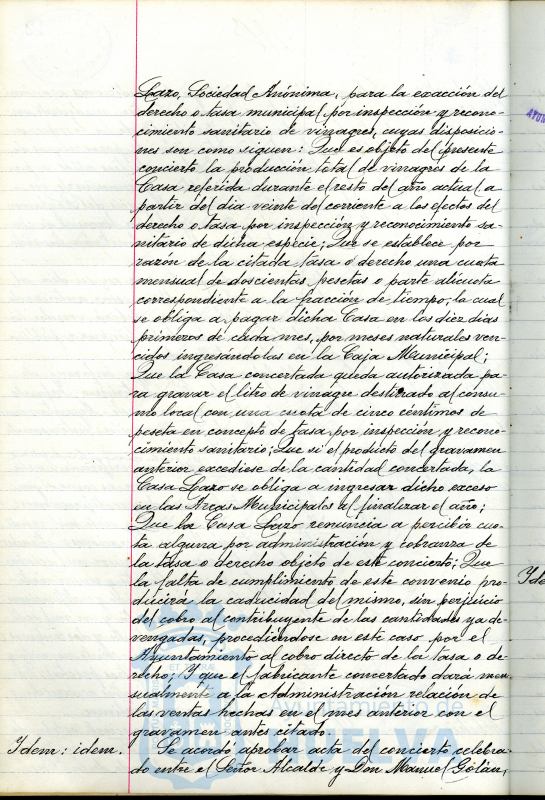 Lazo, Sociedad Anónima, para la exacción del
derecho o tasa municipal por inspección y recono-
cimiento sanitario de vinagres, cuyas disposicio-
nes son como siguen: Que es objeto del presente
concierto la producción total de vinagres de la
Casa referida durante el resto del año actual a
partir del dia veinte del corriente a los efectos del
derecho o tasa por inspección y reconocimiento sa-
nitario de dicha especie; Que se establece por
razón de la citada tasa o derecho una cuota
mensual de doscientas pesetas o parte alicuota
correspondiente a la fracción de tiempo, la cual
se obliga a pagar dicha Casa en los diez dias
primeros de cada mes, por meses naturales ven-
cidos ingresándolas en la Caja Municipal;
Que la Casa concertada queda autorizada pa-
ra gravar el litro de vinagre destinado al consu-
mo local con una cuota de cinco céntimos de
peseta en concepto de tasa por inspección y recono-
cimiento sanitario; Que si el producto del gravamen
anterior excediese de la cantidad concertada, la
Casa Lazo se obliga a ingresar dicho exceso
en las Arcas Municipales al finalizar el año;
Que la Casa Lazo renuncia a percibir cuo-
ta alguna por administración y cobranza de
la tasa o derecho objeto de este concierto; Que
la falta de cumplimiento de este convenio pro-
ducirá la caducidad del mismo, sin perjuicio
del cobro al contribuyente de las cantidades ya de-
vengadas, procediéndose en este caso por el
Ayuntamiento al cobro directo de la tasa o de-
recho; Y que el fabricante concertado dará men-
sualmente a la Administración relación de
las ventas hechas en el mes anterior con el
gravamen antes citado.
Ydem: idem. Se acordó aprobar acta del concierto celebra-
do entre el Señor Alcalde y Don Manuel Gólan,
Ayuntamiento de
HUELVA
AYUN
Yde